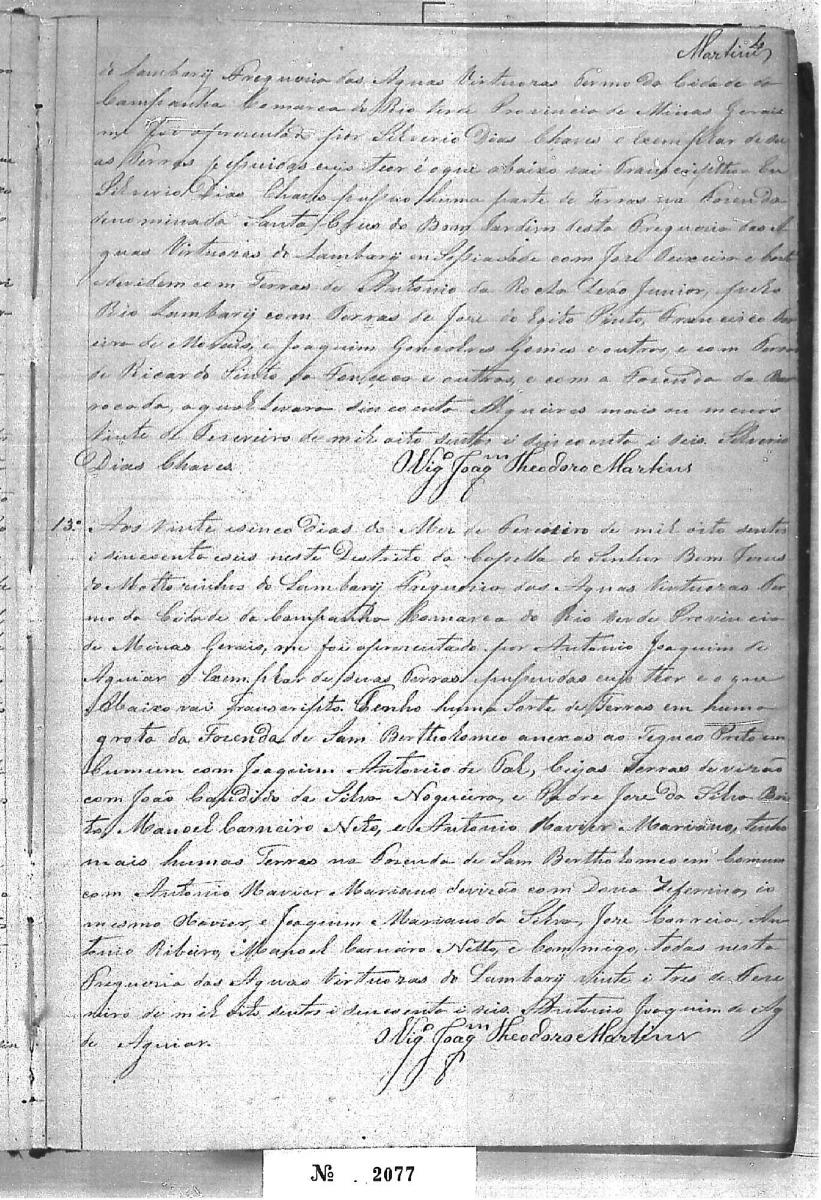 Martins
do Lambarÿ Freguesia das Agoas Virtuozas Termo da Cidade da
Campanha Comarca do Rio Verde Provincia de Minas Gerais
me foi aprezentado por Silverio Dias Chaves o Exemplar de su
as Terras pessuidas cujo theor é o que abaixo vai Transcripto Eu
Silverio Dias Chaves pussuo huma parte de Terras na Fazenda
denominada Santa Crus do Bom Jardim desta Freguesia das A
guas Virtuozas do Lambarÿ em Sosiadade com José Teixeira e
edevidem com Terras de Antonio da Rocha Leão Junior, pelo
Rio Lambarÿ com Terras de José do Egito Pinto, Francisco
eiro de Morais, e Joaquim Gonsalves Gomes e outros, e com Terras
de Ricardo Pinto da e outros, e com a Fazenda da Bar
rocada, a qual levara sincoenta Alqueires mais ou menos
Vinte de Fevereiro de mil oito sentos i sincoenta i seis. Silverio
Dias Chaves. Vigº Joaqm Theodoro Martins
13º Aos Vinte esinco Dias do Mez de Fevereiro de mil oito sentos
i sincoenta eseis neste Destrito da Capella do Senhor Bom Jesus
do Mattosinhos do Lambarÿ Freguesia das Aguas Virtuozas Ter
mo da Cidade da Campanha Comarca do Rio Verde Provincia
de Minas Gerais, me foi aprezentado por Antonio Joaquim de
Aguiar o Exemplar de suas Terras pussuidas cujo theor e o que
Abaixo vai Transcripto. Tenho huma Sorte de Terras em huma
grota da Fazenda de Sam Bertholomeo anexas ao Pinto em
Cumum com Joaquim Antonio de Tal, Cujas Terras devizão
com João Candido da Silva Nogueira, e Padre José da Silva Bri
to, Manoel Carneiro Neto, e Antonio Xavier Mariano, tenho
mais humas Terras na Fazenda de Sam Bertholomeo em Comum
com Antonio Xavier Mariano devizão com Dona Zeferina, io
mesmo Xavier, e Joaquim Mariano da Silva, José Correia, An
tonio Ribeiro, Manoel Carneiro Netto, e Commigo, todas nesta
Freguesia das Aguas Virtuozas do Lambarÿ vinte i tres de Feve
reiro de mil oito sentos i sincoenta i seis. Antonio Joaquim de Ag
de Aguiar. Vigº Joaqm Theodoro Martins
Nº 2077